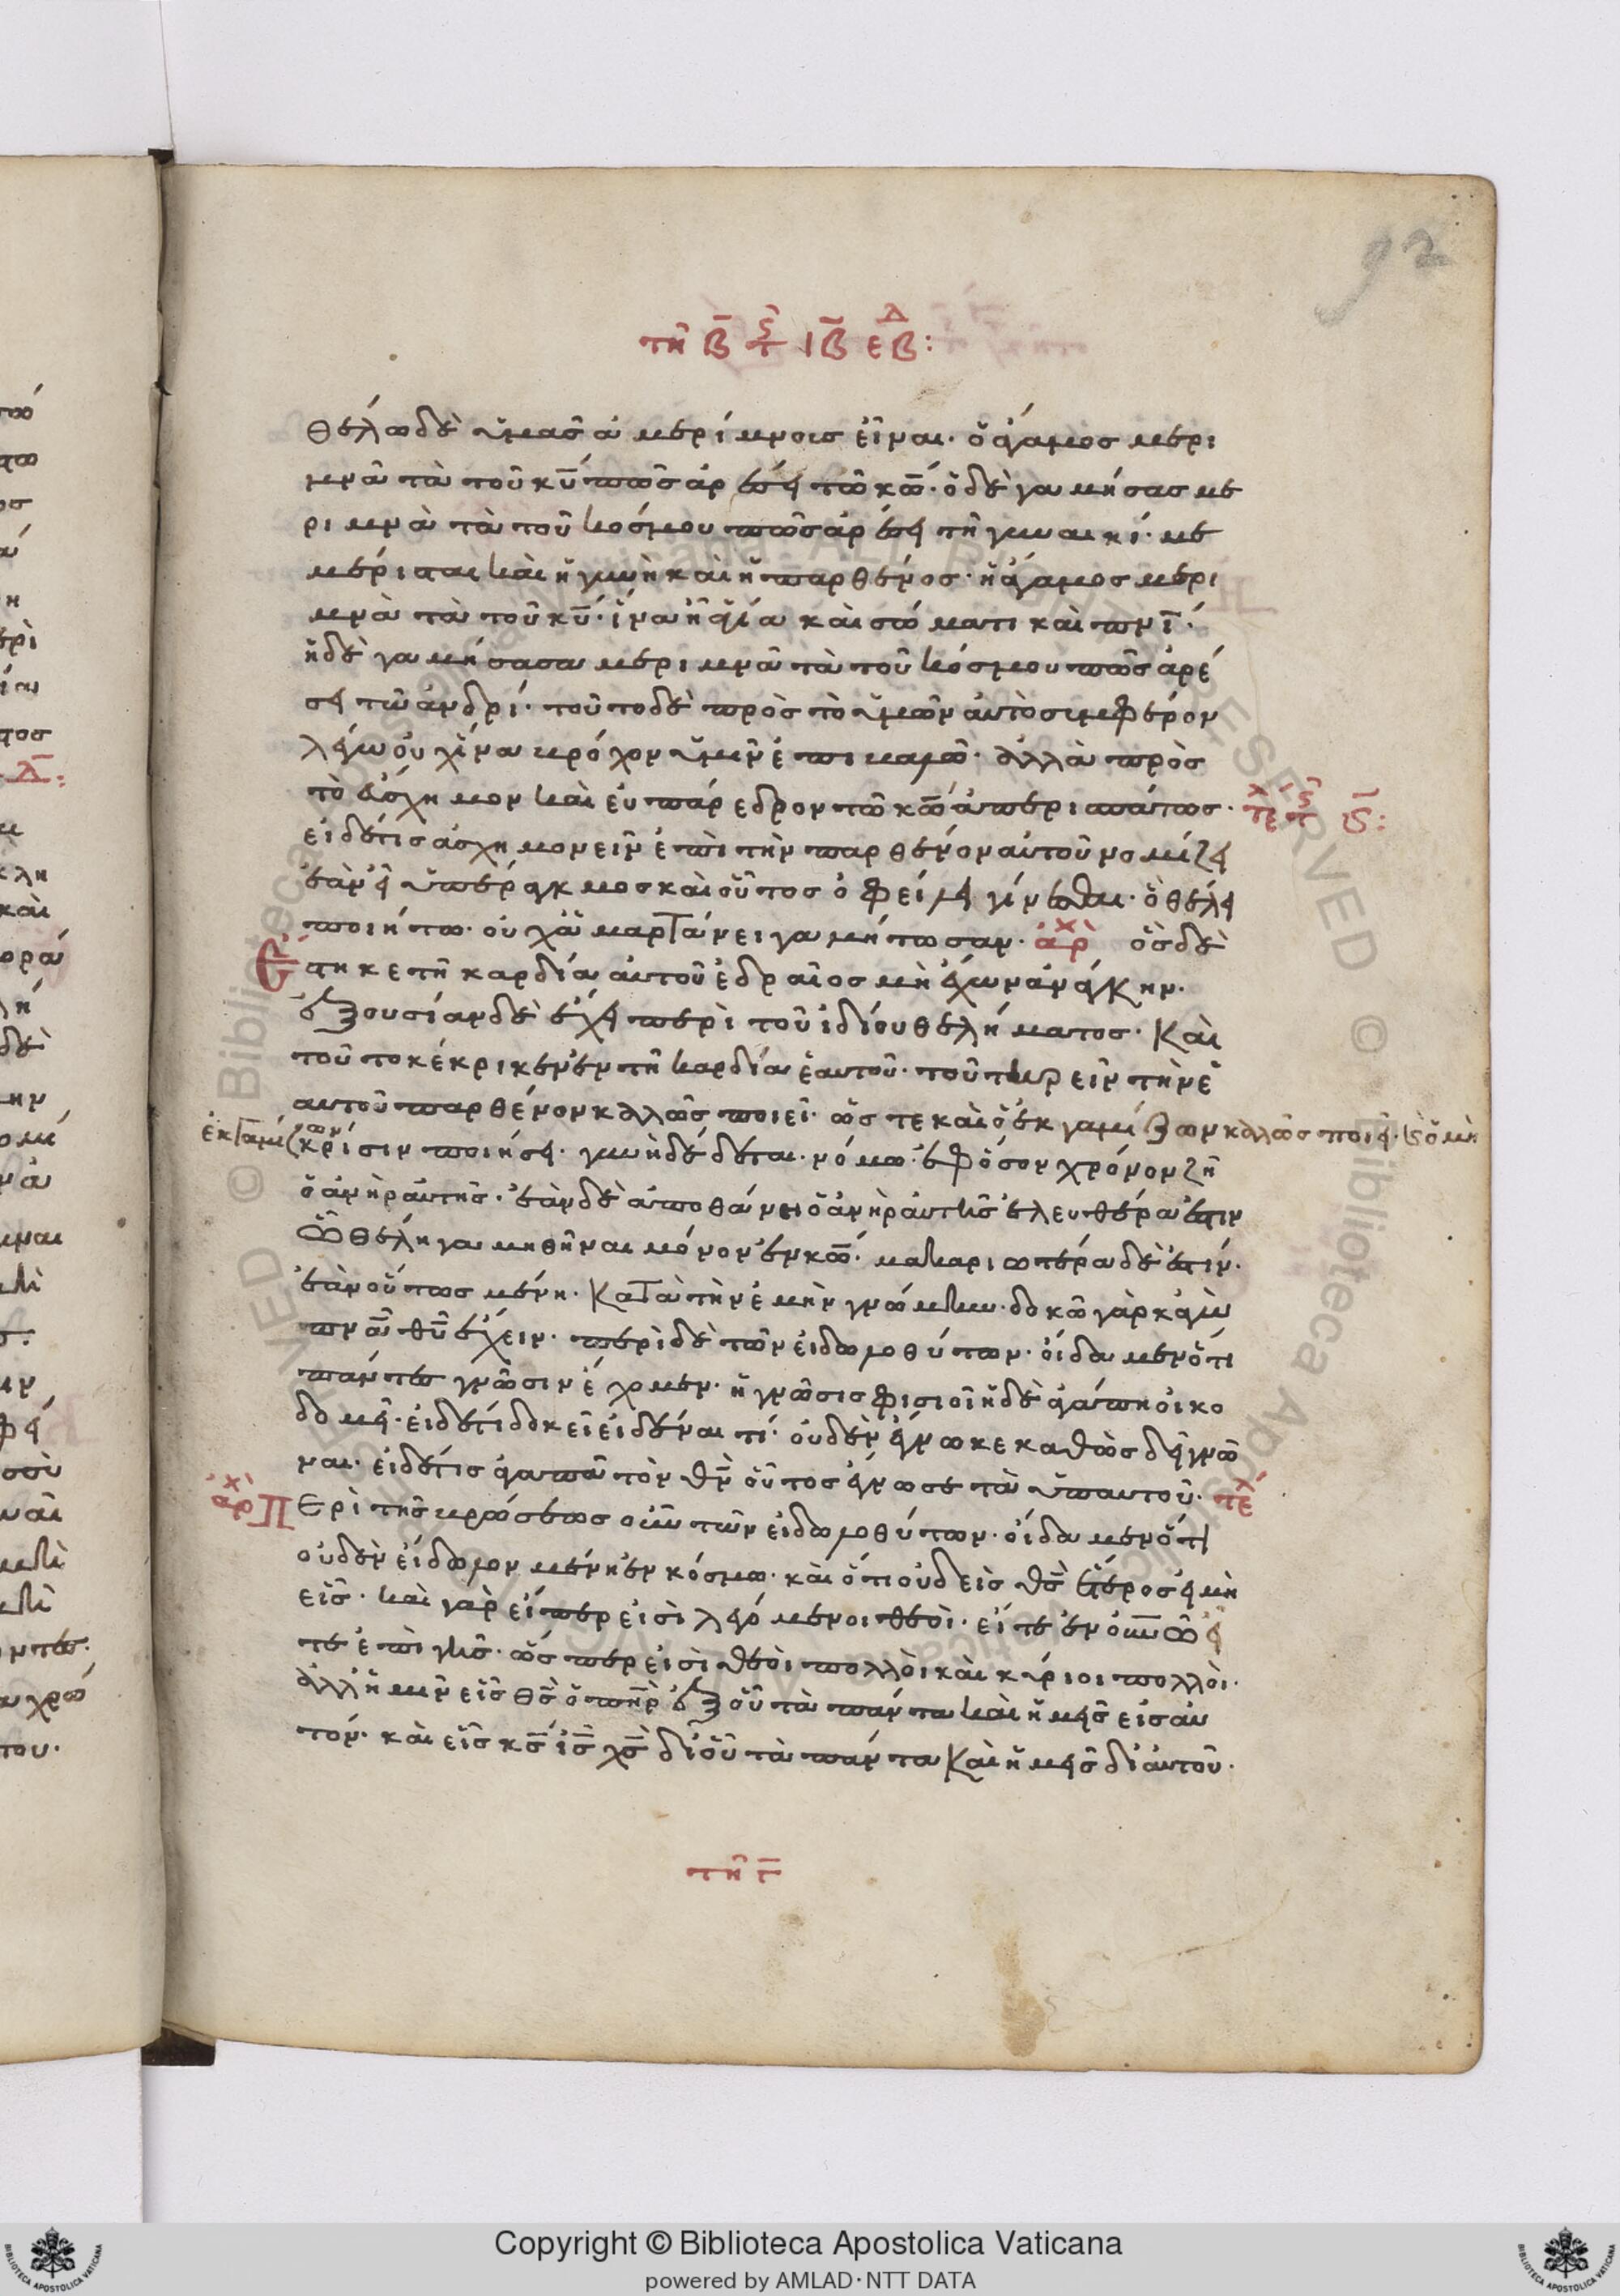 92
τῆ β̅ τ ς ιβ̅ εβδ:
θέλω δὲ ὑμᾶς ἀμερίμνοις εἶναι· ὁ ἄγαμος μερι
μνᾶ τὰ τοῦ κ̅υ̅ πῶς ἀρέσει τῶ κ̅ω̅· ὁ δὲ γαμήσας με
ριμνὰ τὰ τοῦ κόσμου πῶς ἀρέσει τῆ γυναικί· με
μέρισται καὶ ἡ γυνὴ καὶ ἡ παρθένος· ἡ ἄγαμος μερι
μνὰ τὰ τοῦ κ̅υ̅· ἵνα ἦ ἁγία καὶ σώματι καὶ π̅ν̅ι̅·
ἡ δὲ γαμήσασα μεριμνᾶ τὰ τοῦ κόσμου πῶς ἀρέ
σει τῶ ἀνδρί· τοῦτο δὲ πρὸς τὸ ὑμῶν αὐτὸ συμφέρον
λέγω οὐχ ἵνα βρόχον ὑμῖν ἐπιβαλῶ· ἀλλὰ πρὸς
τὸ εὔσχημον καὶ εὐπάρεδρον τῶ κ̅ω̅ ἀπερισπάστως· τε
εἰ δέ τις ἀσχημονεῖν ἐπὶ τὴν παρθένον αὐτοῦ νομίζει
ἐὰν ἦ ὑπέρακμος καὶ οὕτος ὀφείλει γίνεσθαι· ὃ θέλει
ποιήτω· οὐχ ἁμαρτάνει γαμήτωσαν· ἀρχ ὃς δὲ
ἕστηκε τῆ καρδία αὐτοῦ ἑδραῖος μὴ ἔχων ἀνάγκην·
ἐξουσίαν δὲ ἔχει περὶ τοῦ ἰδίου θελήματος· καὶ
τοῦτο κέκρικεν ἐν τῆ καρδία ἑαυτοῦ· τοῦ τηρεῖν τὴν ἑ
αυτοῦ παρθένον καλλῶς ποιεῖ· ὥστε καὶ ὁ ἐκγαμίζων καλλῶς ποιεῖ· καὶ ὁ μὴ
ἐκγαμίζων κρίσιν ποιήσει· γυνὴ δέδεται· νόμω· ἐφ ὅσον χρόνον ζῆ
ὁ ἀνὴρ αὐτῆς· ἐὰν δὲ ἀποθάνη ὁ ἀνὴρ αὐτῆς ἐλευθέρα ἐστιν
ὧ θέλη γαμηθῆναι μόνον ἐν κ̅ω̅· μακαριωτέρα δὲ ἐστίν·
ἐὰν οὕτως μένη· κατὰ τὴν ἐμὴν γνώμην· δοκῶ γὰρ κἀγὼ
π̅ν̅α̅ θ̅υ̅ ἔχειν· περὶ δὲ τῶν εἰδωλοθύτων· οἴδαμεν ὅτι
πάντες γνῶσιν ἔχομεν· ἡ γνῶσις φισιοῖ ἡ δὲ ἀγάπη οἰκο
δομεῖ· εἰ δέ τί δοκεῖ εἰδέναι τί· οὐδὲν ἔγνωκε καθὼς δεῖ γνῶ
ναι· εἰ δέ τις ἀγαπᾶ τὸν θ̅ν̅ οὗτος ἔγνωσε τὰ ὑπ αυτοῦ· τε
ἀρχ Περὶ τῆς βρώσεως οὖν τῶν εἰδωλοθύτων· οἴδαμεν ὅτι
οὐδὲν εἴδωλον μένη ἐν κόσμω· καὶ ὅτι οὐδεὶς θ̅ς̅ ἕτερος εἰ μὴ
εἷς· καὶ γὰρ εἴπερ εἰσὶ λεγόμενοι θεοὶ· εἴτε ἐν ο̅υ̅ν̅ω̅ εἴ
τε ἐπὶ γῆς· ὥσπερ εἰσὶ θεοὶ πολλοὶ καὶ κύριοι πολλοὶ·
ἀλλ ἡμῖν εἷς θ̅ς̅ ὁ π̅η̅ρ̅ ἐξ οὗ τὰ πάντα καὶ ἡμεῖς εἰς αὐ
τόν· καὶ εἷς κ̅ς̅ ι̅ς̅ χ̅ς̅ δι οὗ τὰ πάντα καὶ ἡμεῖς δι αὐτοῦ·
τῆ γ̅
Copyright © Biblioteca Apostolica Vaticana
powered by AMLAD·NTT DATA